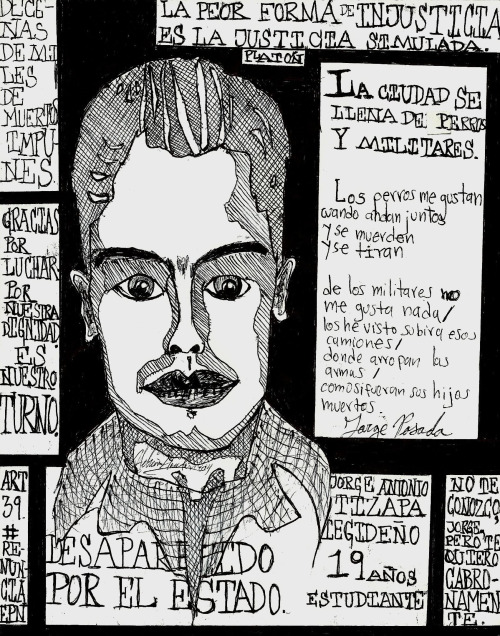 DECE-
NAS
DE MI-
LES
DE
MUERTOS
IMPU-
NES.
LA PEOR FORMA DE INJUSTICIA
ES LA JUSTICIA SIMULADA.
PLATÓN
LA CIUDAD SE
LLENA DE PERROS
Y MILITARES.
Los perros me gustan
cuando andan juntos
y se muerden
y se tiran
de los militares no
me gusta nada/
los he visto subir a esos
camiones/
donde arropan las
armas/
como si fueran sus hijos
muertos.
Jorge Posada
GRACIAS
POR
LUCHAR
POR
NUESTRA
DIGNIDAD
ES
NUESTRO
TURNO.
ART
39.
#
RE-
NUN-
CIA
EPN
DESAPARECIDO
POR EL ESTADO.
JORGE ANTONIO
TIZAPA
LEGIDEÑO
19 AÑOS
ESTUDIANTE
NO TE
CONOZCO,
JORGE,
PERO TE
QUIERO
CABRO-
NAMEN-
TE.